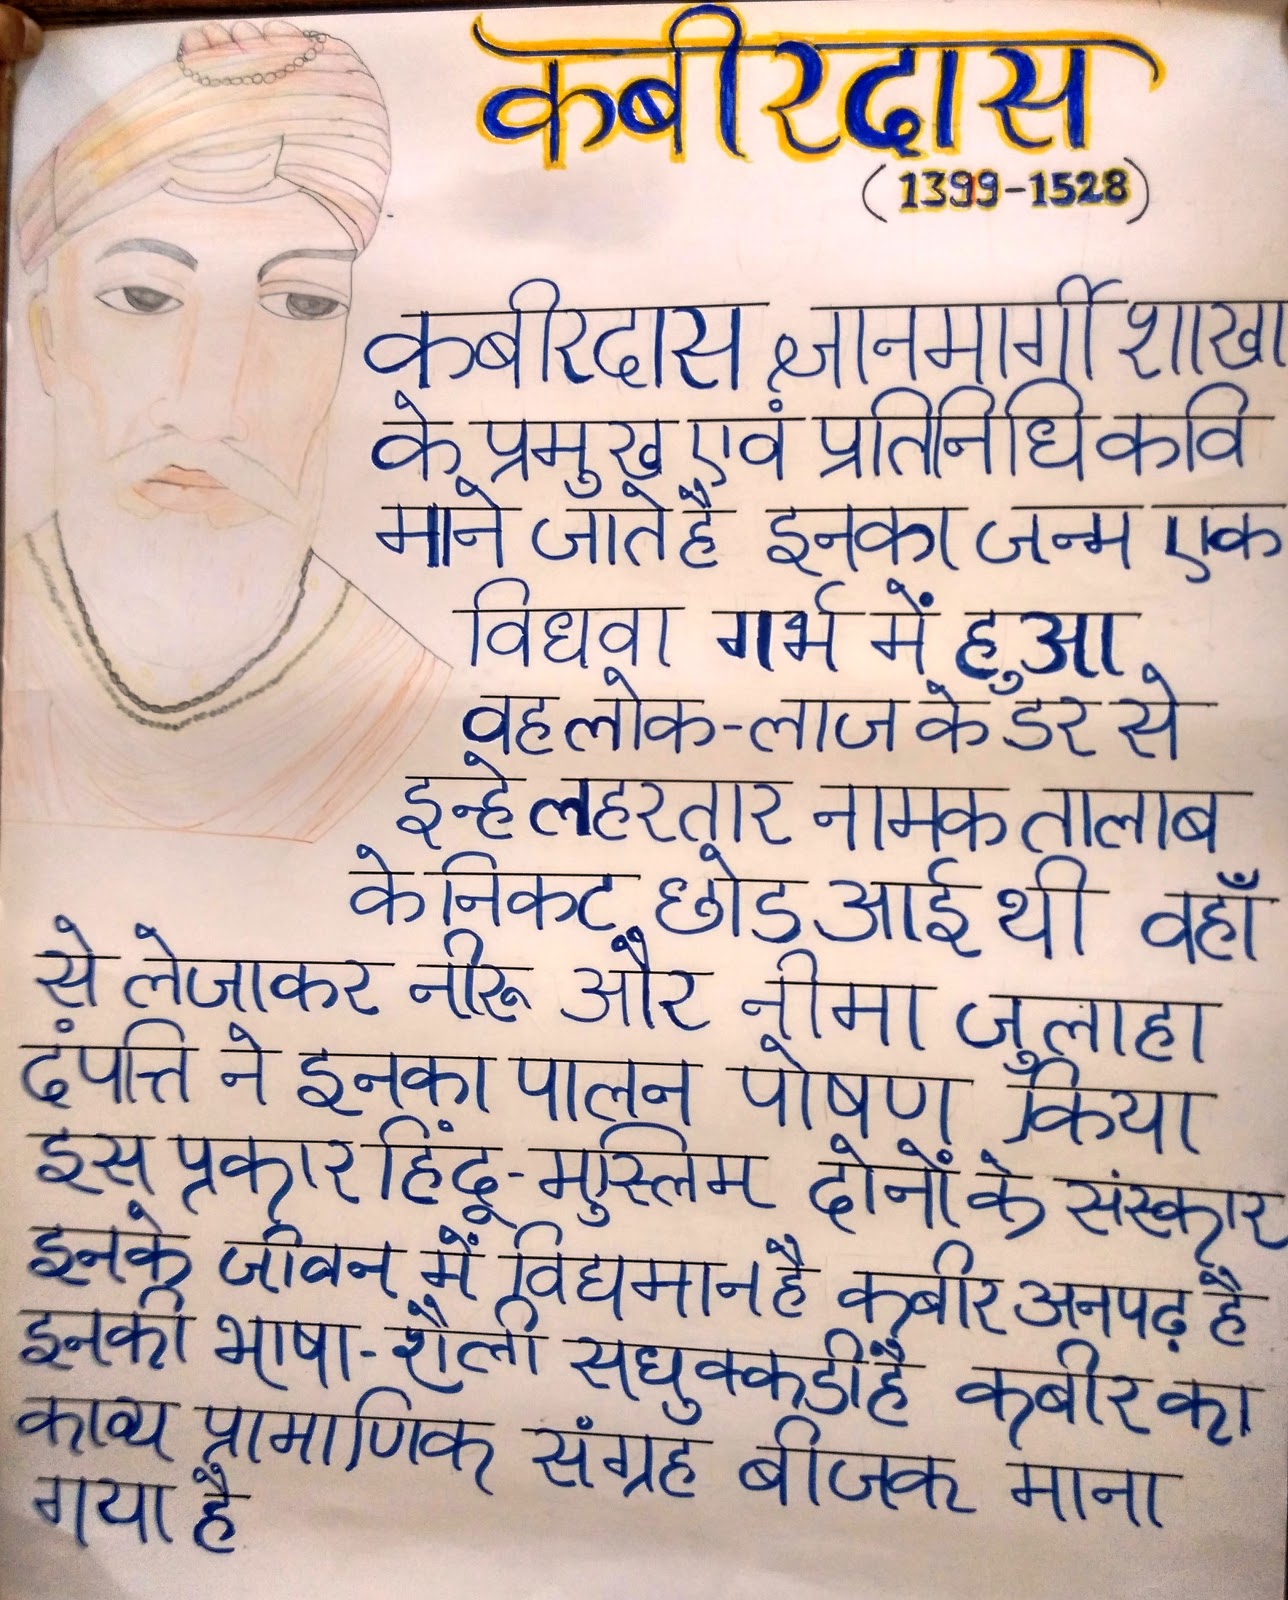 कबीरदास
(1399-1528)
कबीरदास ज्ञानमार्गी शाखा
के प्रमुख एवं प्रतिनिधि कवि
माने जाते है इनका जन्म एक
विधवा गर्भ में हुआ
वह लोक-लाज के डर से
इन्हे लहरतार नामक तालाब
के निकट छोड आई थी वहाँ
से लेजाकर नीरू और नीमा जुलाहा
दंपत्ति ने इनका पालन पोषण किया
इस प्रकार हिंदू-मुस्लिम दोनों के संस्कार
इनके जीवन में विद्यमान है कबीर अनपढ़ है
इनकी भाषा-शैली सधुक्कडी है कबीर का
काव्य प्रामाणिक संग्रह बीजक माना
गया है